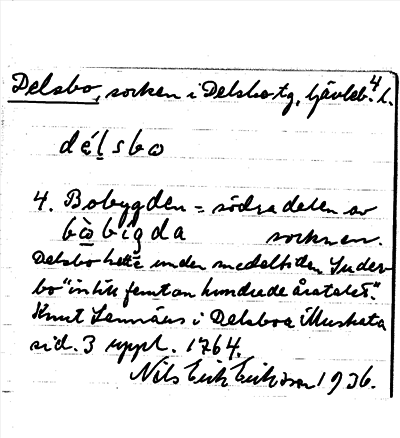 4
Delsbo, socken i Delsbo tg, Gävleb. l.
délsbo
4. Bobygden = södra delen av
bòbigda socknen.
Delsbo hette under medeltiden "Suder-
bo" intill femton hundrede årstalet".
Knut Lenæus i Delsboa illustrata
sid. 3 uppl. 1764.
Nils Erik Eriksson 1936.